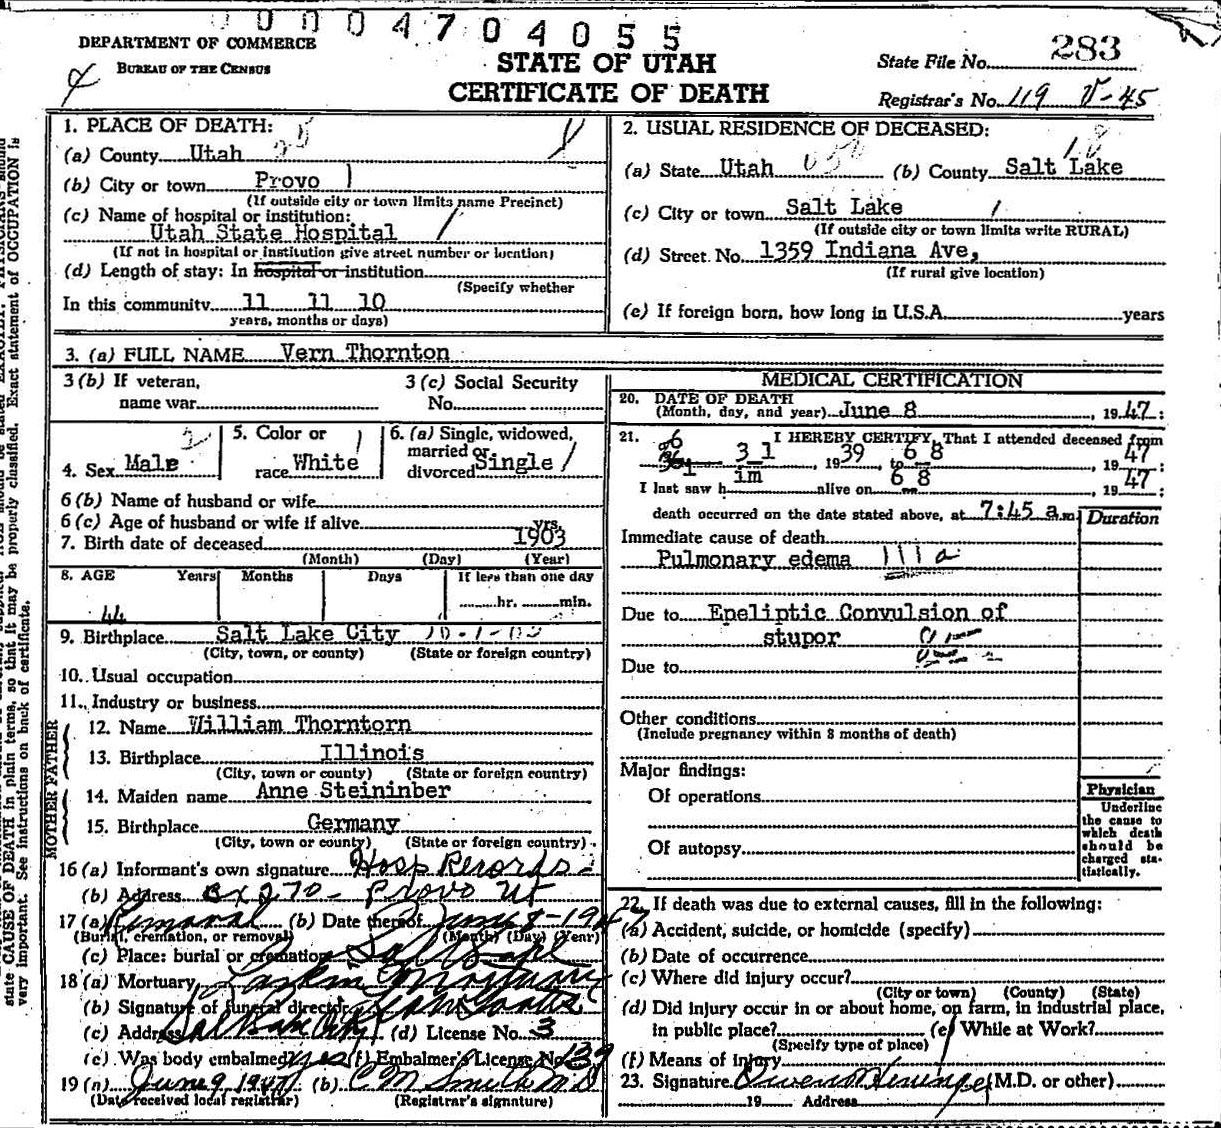 00004704055
DEPARTMENT OF COMMERCE
BUREAU OF THE CENSUS
STATE OF UTAH
CERTIFICATE OF DEATH
State File No. 283
Registrar's No. 119 V-45
1. PLACE OF DEATH:
(a) County Utah
(b) City or town Provo
(If outside city or town limits name Precinct)
(c) Name of hospital or institution:
Utah State Hospital
(If not in hospital or institution give street number or location)
(d) Length of stay: In hospital or institution
(Specify whether
In this community 11 11 10
years, months or days)
2. USUAL RESIDENCE OF DECEASED:
(a) State Utah (b) County Salt Lake
(c) City or town Salt Lake
(If outside city or town limits write RURAL)
(d) Street No. 1359 Indiana Ave,
(If rural give location)
(e) If foreign born, how long in U.S.A. years
3. (a) FULL NAME Vern Thornton
3 (b) If veteran,
name war
3 (c) Social Security
No.
4. Sex Male
5. Color or
race White
6. (a) Single, widowed,
married or
divorced Single
6 (b) Name of husband or wife
6 (c) Age of husband or wife if alive yrs.
7. Birth date of deceased 1903
(Month) (Day) (Year)
8. AGE Years Months Days If less than one day
44 hr. min.
9. Birthplace Salt Lake City 10-1-03
(City, town, or county) (State or foreign country)
10. Usual occupation
11. Industry or business
FATHER
12. Name William Thorntorn
13. Birthplace Illinois
(City, town or county) (State or foreign country)
MOTHER
14. Maiden name Anne Steininber
15. Birthplace Germany
(City, town or county) (State or foreign country)
16 (a) Informant's own signature Hosp Records
(b) Address Bx 270 - Provo Ut
17 (a) Removal (b) Date thereof June 8-1947
(Burial, cremation, or removal) (Month) (Day) (Year)
(c) Place: burial or cremation Salt Lake
18 (a) Mortuary Larkin Mortuary
(b) Signature of funeral director
(c) Address Salt Lake City (d) License No. 3
(e) Was body embalmed yes (f) Embalmer's License No. 139
19 (a) June 9 1947 (b) C M Smith M D
(Date received local registrar) (Registrar's signature)
MEDICAL CERTIFICATION
20. DATE OF DEATH
(Month, day, and year) June 8, 1947:
21. I HEREBY CERTIFY, That I attended deceased from
3 1, 1939 to 6 8, 1947
I last saw him alive on 6 8, 1947:
death occurred on the date stated above, at 7:45 a.m
Duration
Immediate cause of death
Pulmonary edema 111a
Due to Epeliptic Convulsion of
stupor
Due to
Other conditions
(Include pregnancy within 3 months of death)
Major findings:
Of operations
Of autopsy
Physician
Underline
the cause to
which death
should be
charged sta-
tistically.
22. If death was due to external causes, fill in the following:
(a) Accident, suicide, or homicide (specify)
(b) Date of occurrence
(c) Where did injury occur?
(City or town) (County) (State)
(d) Did injury occur in or about home, on farm, in industrial place,
in public place? (e) While at Work?
(Specify type of place)
(f) Means of injury
23. Signature (M.D. or other)
19 Address
state CAUSE OF DEATH in plain terms, so that it may be properly classified. Exact statement of OCCUPATION is
very important. See instructions on back of certificate.